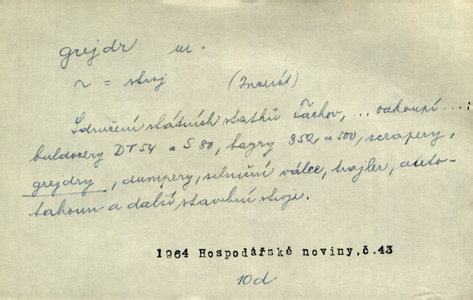 grejdr m.
~ = stroj (Inzerát)
Sdružení státních statků Tachov, ... odkoupí ...:
buldozery DT 54 a S 80, bagry 352, a 500, scrapery,
grejdry, dumpery, silniční válce, trajler, auto-
tahoun a další stavební stroje.
1964 Hospodářské noviny,č.43
10d